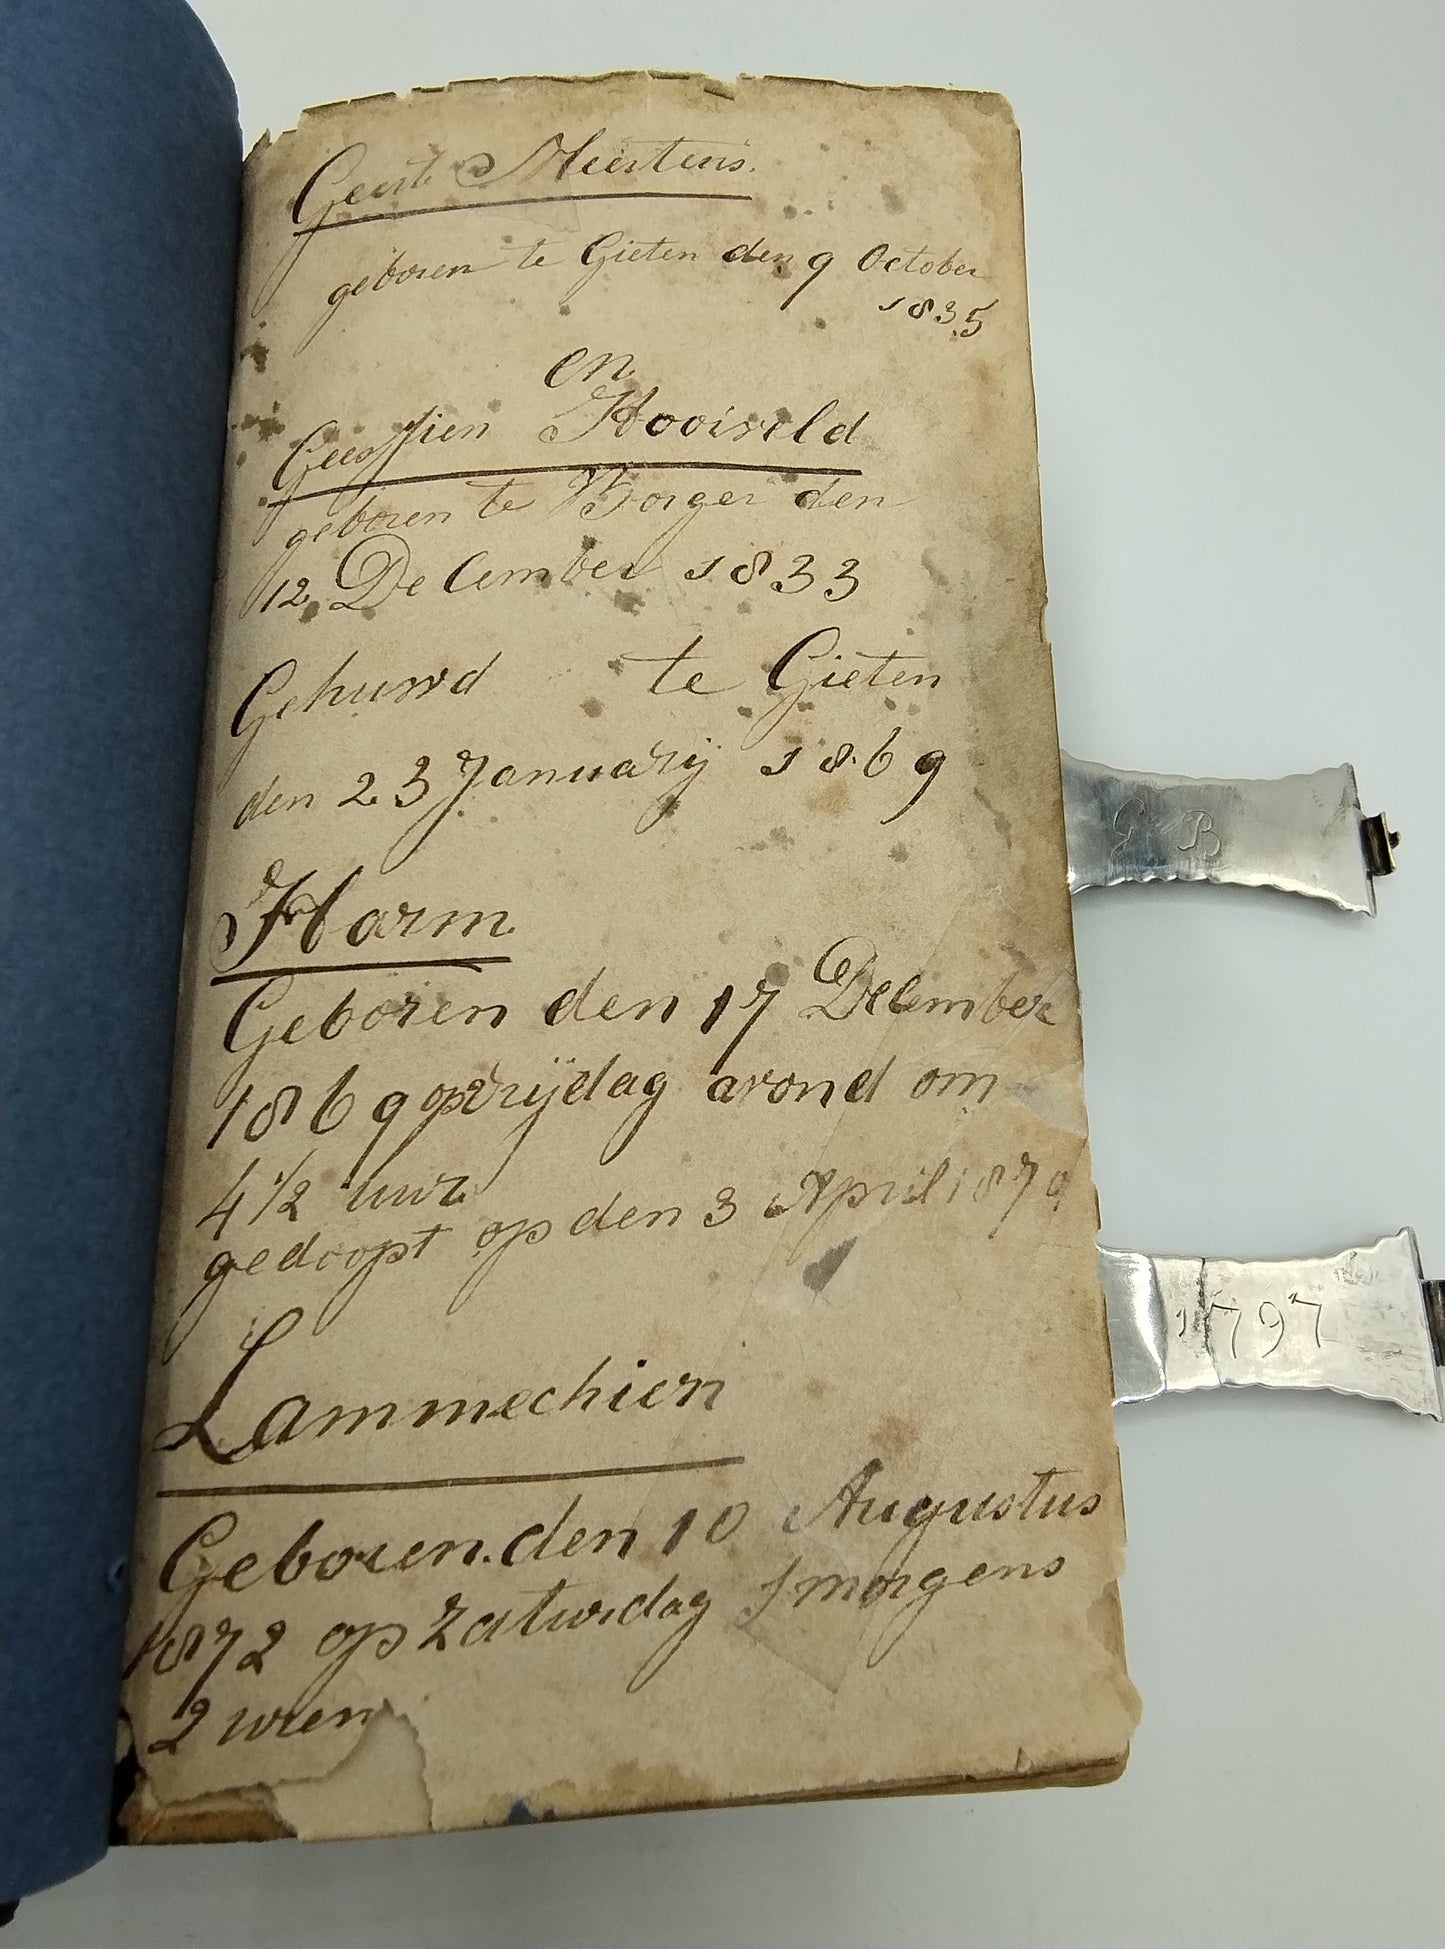 Geert Meertens.
geboren te Gieten den 9 October
1835
en
Geessien Hooiveld
geboren te Borger den
12 December 1833
Gehuwd te Gieten
den 23 January 1869
Harm
Geboren den 17 December
1869 op vrijdag avond om
4 1/2 uur
gedoopt op den 3 April 1870
Lammechien
Geboren den 10 Augustus
1872 op Zaturdag smorgens
2 uren
G B
1797